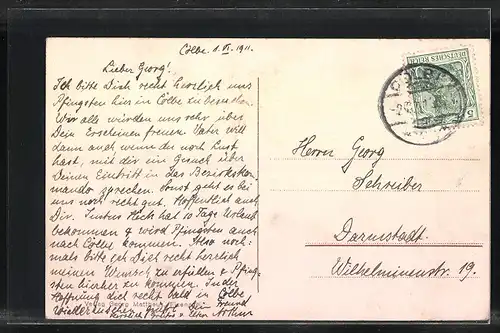 Cölbe 1. VI. 1911.
Lieber Georg!
Ich bitte Dich recht herzlich uns
Pfingsten hier in Cölbe zu besuchen.
Wir alle würden uns sehr über
Dein Erscheinen freuen. Vater will
dann auch, wenn du noch Lust
hast, mit dir ein Gesuch über
Deinen Eintritt in das Bezirkskom-
mando sprechen. Sonst geht es bei
uns noch recht gut. Hoffentlich auch
Dir. Justus Heck hat 10 Tage Urlaub
bekommen & wird Pfingsten auch
nach Cölbe kommen. Also noch-
mals bitte ich Dich recht herzlich
meinen Wunsch zu erfüllen & Pfing-
sten hierher zu kommen. In der
Hoffnung dich recht bald in Cölbe
wiederzusehen
Dein Freund
Arthur
Verlag Georg
CÖLBE
DEUTSCHES REICH
5
Herrn Georg
Schreiber
Darmstadt.
Wilhelminenstr. 19.